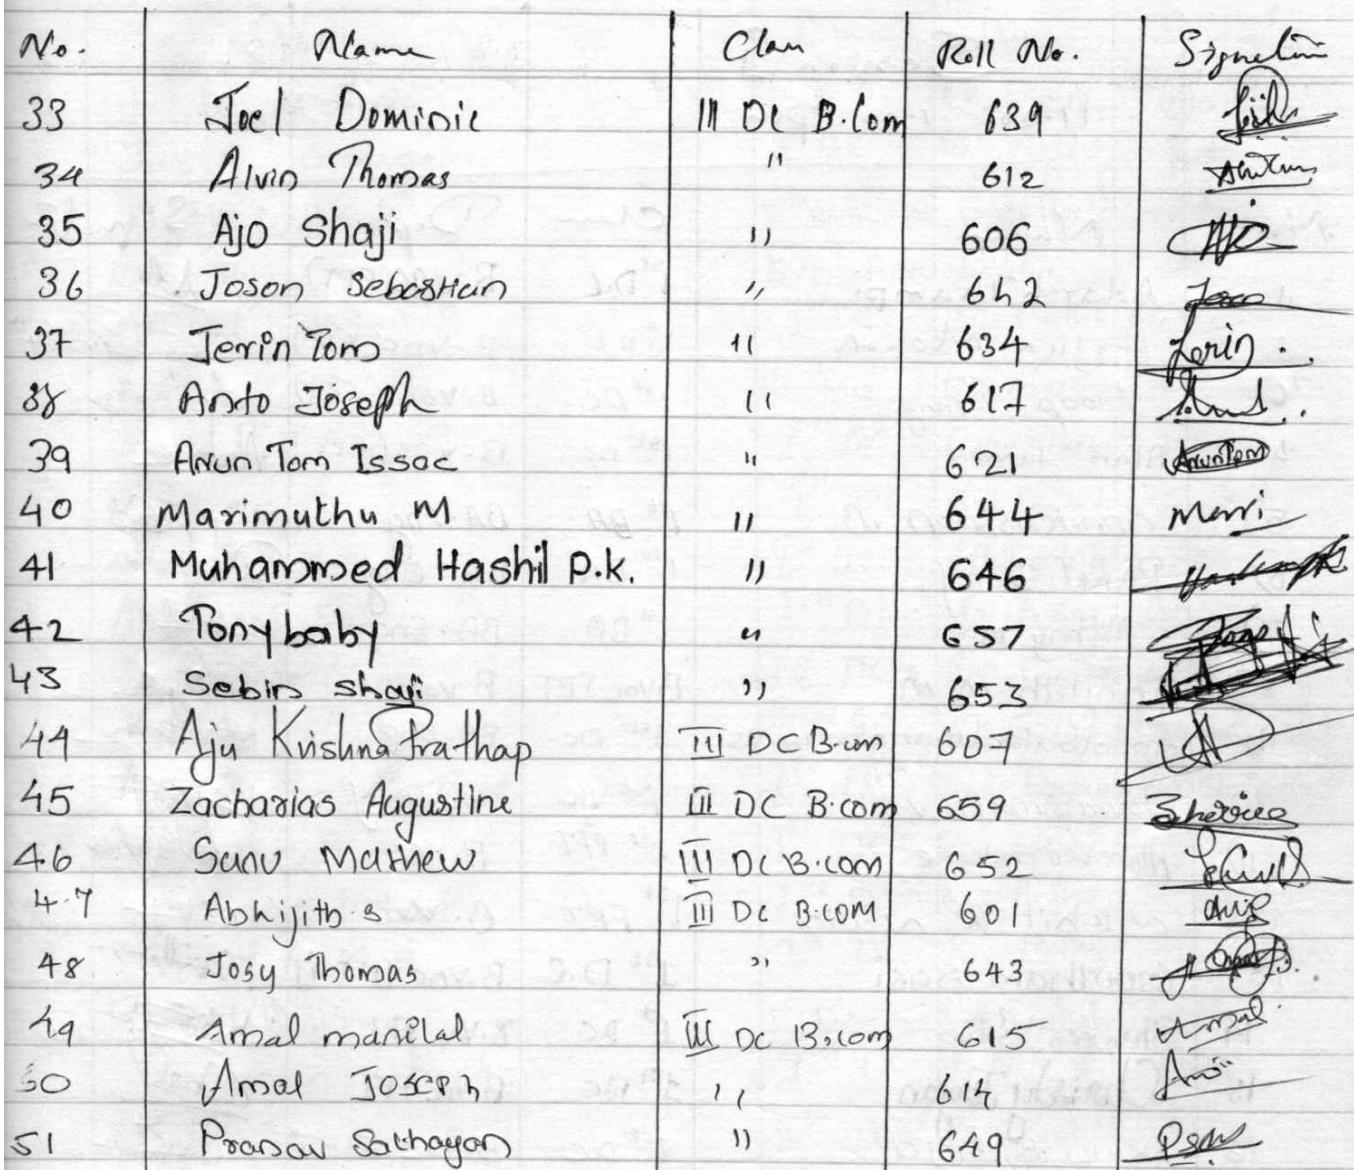 No. Name Class Roll No. Signature
33 Joel Dominic III DC B.Com 639
34 Alvin Thomas " 612
35 Ajo Shaji " 606
36 Joson Sebastian " 642
37 Jerin Tom " 634 Jerin.
38 Anto Joseph " 617
39 Arun Tom Issac " 621 ArunTom
40 Marimuthu M " 644 Mari
41 Muhammed Hashil P.k. " 646
42 Tony baby " 657
43 Sebin shaji " 653
44 Aju Krishna Prathap III DC B.com 607
45 Zacharias Augustine III DC B.com 659
46 Sanu Mathew III DC B.com 652
47 Abhijith s III DC B.COM 601
48 Josy Thomas " 643
49 Amal manilal III DC B.com 615 Amal
50 Amal JOSEPH " 614
51 Pranav Sathayan " 649